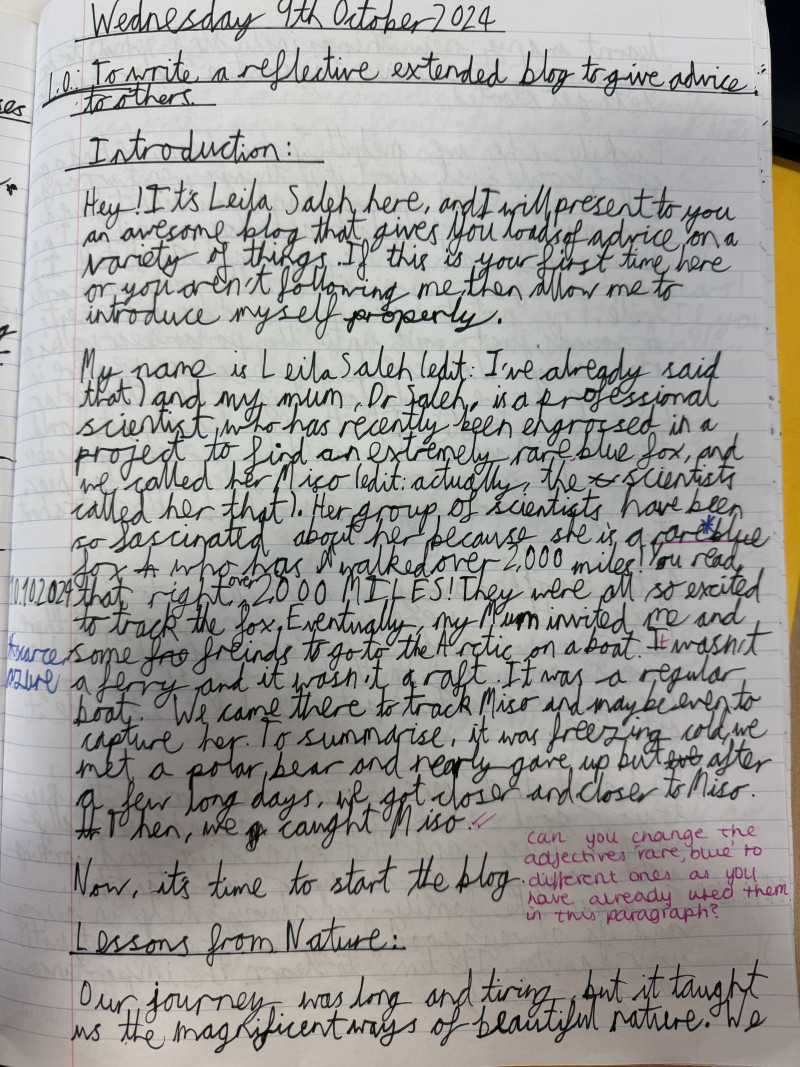 Wednesday 9th October 2024
L.O: To write a reflective extended blog to give advice
to others.
Introduction:
Hey! It's Leila Saleh here, and I will present to you
an awesome blog that gives you loads of advice on a
variety of things. If this is your first time here
or you aren't following me, then allow me to
introduce myself properly.
My name is Leila Saleh (edit: I've already said
that) and my mum, Dr Saleh, is a professional
scientist, who has recently been engrossed in a
project to find an extremely rare blue fox, and
we called her Miso (edit: actually, the scientists
called her that). Her group of scientists have been
so fascinated about her because she is a rare * blue
fox who has walked over 2,000 miles! You read
10.10.2024
that right over 2,000 MILES! They were all so excited
to track the fox. Eventually, my Mum invited me and
*scarce,
azure
some freinds to go to the Arctic on a boat. It wasn't
a ferry and it wasn't a raft. It was a regular
boat. We came there to track Miso and maybe even to
capture her. To summarise, it was freezing cold, we
met a polar bear and nearly gave up but after
a few long days, we got closer and closer to Miso.
Then, we caught Miso.
can you change the
adjectives rare, blue to
different ones as you
have already used them
in this paragraph?
Now, it's time to start the blog.
Lessons from Nature:
Our journey was long and tiring, but it taught
us the magnificent ways of beautiful nature. We